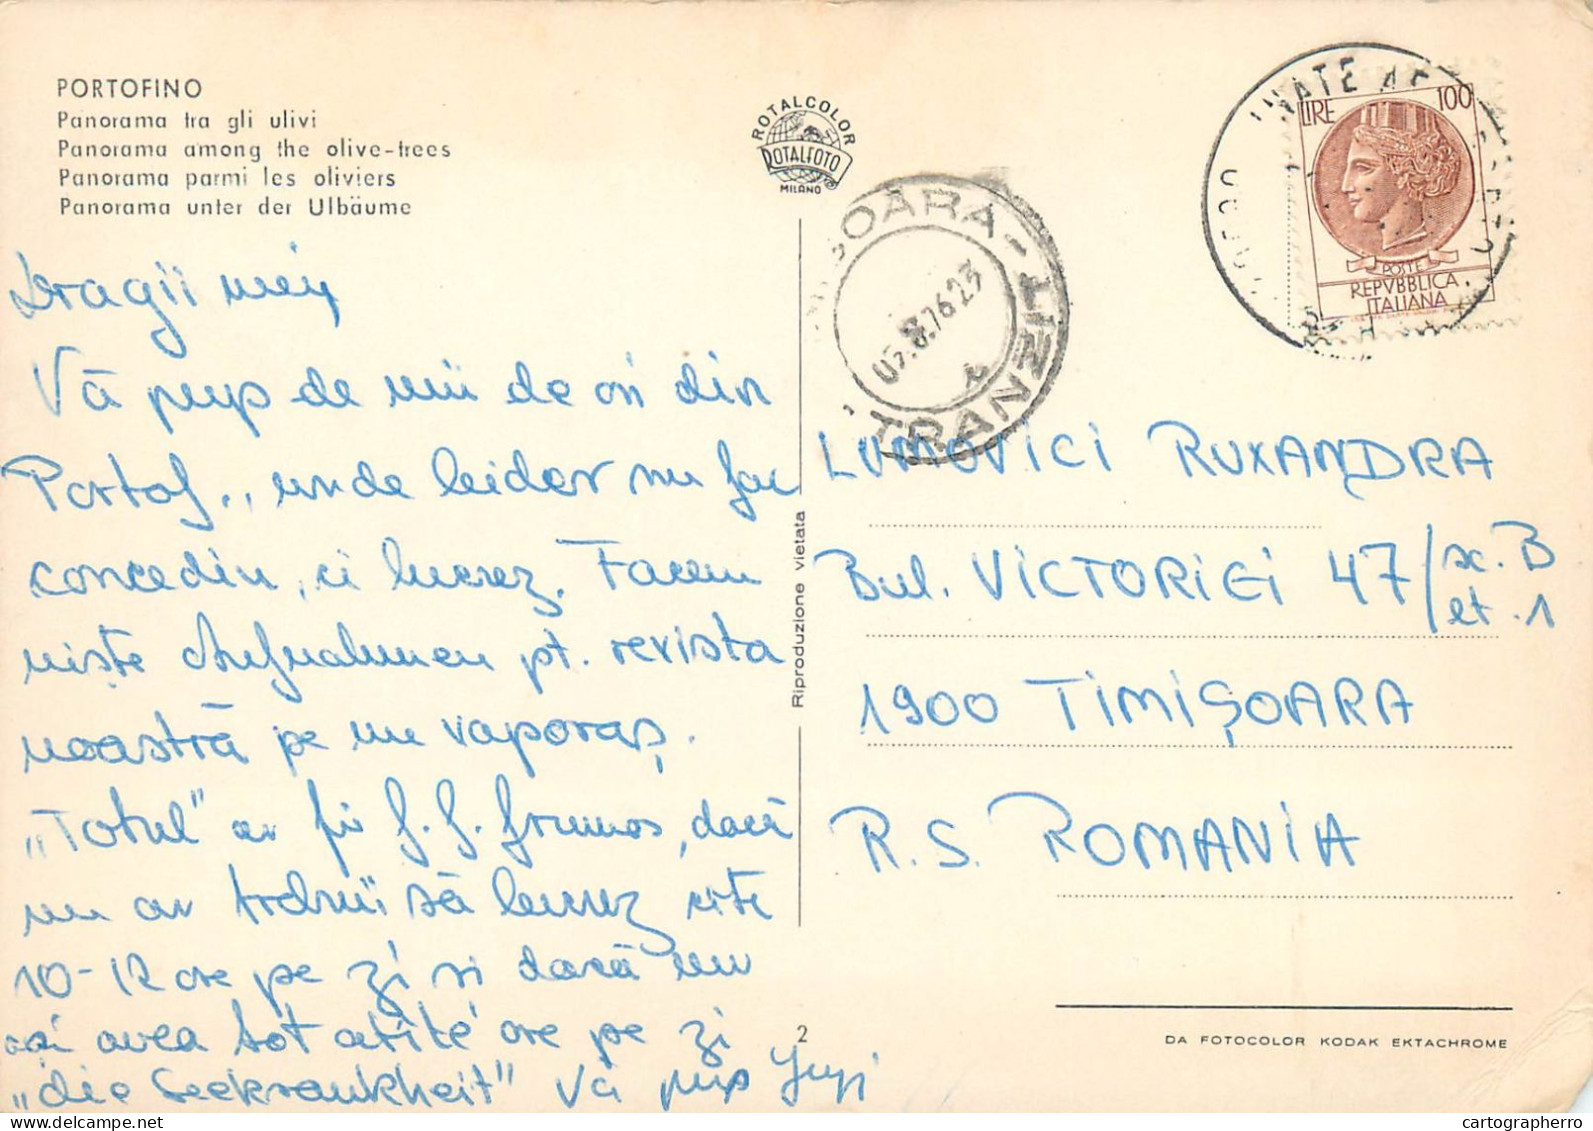 PORTOFINO
Panorama tra gli ulivi
Panorama among the olive-trees
Panorama parmi les oliviers
Panorama unter der Ulbäume
ROTALCOLOR
ROTALFOTO
MILANO
LIRE 100
POSTE
REPVBBLICA
ITALIANA
OARA - TRANZIT
76.23
Dragii mei,
Vă pup de mii de ori din
Portof., unde leider nu fac
concediu, ci lucrez. Facem
niște Aufnahmen pt. revista
noastră pe un vaporaș.
„Totul" ar fi f. f. frumos, dacă
nu ar trebui să lucrez cîte
10-12 ore pe zi și dacă nu
aș avea tot atîtea ore pe zi
„die Seekrankheit" Vă pup
Riproduzione vietata
LUMOVICI RUXANDRA
Bul. VICTORIEI 47/sc. B
et. 1
1900 TIMIȘOARA
R. S. ROMANIA
2
DA FOTOCOLOR KODAK EKTACHROME
cartographerro